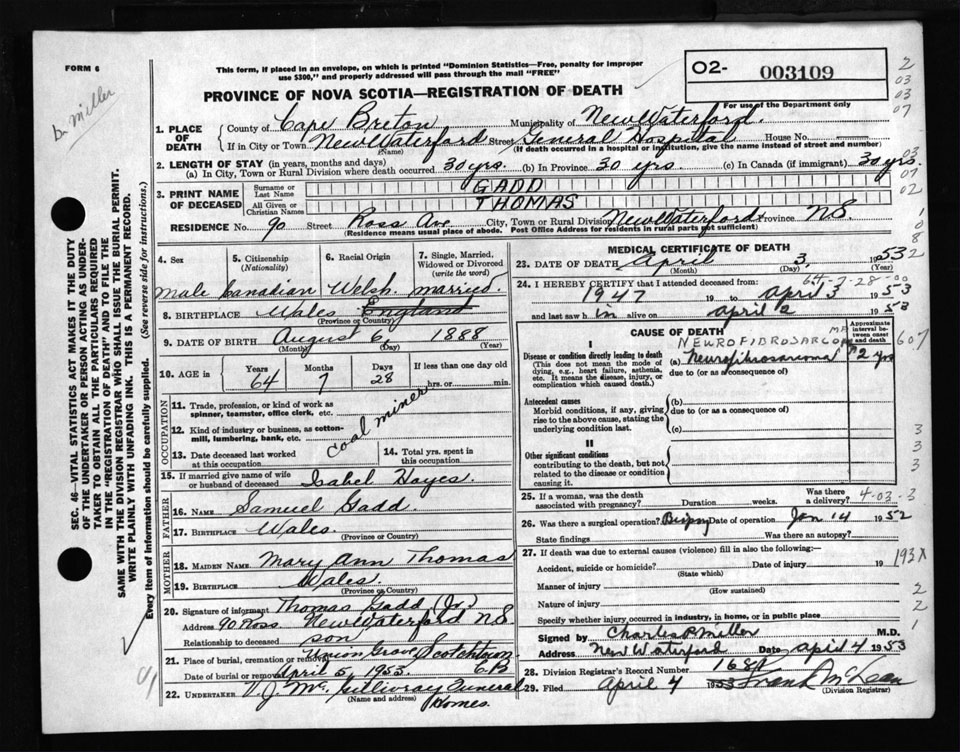 FORM 6
Dr. Miller
This form, if placed in an envelope, on which is printed "Dominion Statistics—Free, penalty for improper
use $300," and properly addressed will pass through the mail "FREE"
PROVINCE OF NOVA SCOTIA—REGISTRATION OF DEATH
O2- 003109
For use of the Department only
2
03
03
07
03
07
02
1
0
8
2
SEC. 46—VITAL STATISTICS ACT MAKES IT THE DUTY
OF THE UNDERTAKER OR PERSON ACTING AS UNDER-
TAKER TO OBTAIN ALL THE PARTICULARS REQUIRED
IN THE "REGISTRATION OF DEATH" AND TO FILE THE
SAME WITH THE DIVISION REGISTRAR WHO SHALL ISSUE THE BURIAL PERMIT.
WRITE PLAINLY WITH UNFADING INK. THIS IS A PERMANENT RECORD.
Every item of Information should be carefully supplied. (See reverse side for instructions.)
1. PLACE OF DEATH
County of Cape Breton Municipality of New Waterford.
If in City or Town New Waterford Street General Hospital House No.
(Name) (If death occurred in a hospital or institution, give the name instead of street and number)
2. LENGTH OF STAY (in years, months and days)
(a) In City, Town or Rural Division where death occurred 30 yrs. (b) In Province 30 yrs. (c) In Canada (if immigrant) 30 yrs.
3. PRINT NAME OF DECEASED
Surname or Last Name GADD
All Given or Christian Names THOMAS
RESIDENCE No. 90 Street Ross Ave City, Town or Rural Division New Waterford Province N.S
(Residence means usual place of abode. Post Office Address for residents in rural parts not sufficient)
4. Sex
Male
5. Citizenship (Nationality)
Canadian
6. Racial Origin
Welsh
7. Single, Married, Widowed or Divorced (write the word)
married.
8. BIRTHPLACE Wales England
(Province or Country)
9. DATE OF BIRTH August 6, 1888
(Month) (Day) (Year)
10. AGE in Years Months Days If less than one day old
64 7 28 hrs. or min.
OCCUPATION
11. Trade, profession, or kind of work as
spinner, teamster, office clerk, etc.
12. Kind of industry or business, as cotton-
mill, lumbering, bank, etc.
coal miner
13. Date deceased last worked
at this occupation
14. Total yrs. spent in
this occupation
15. If married give name of wife
or husband of deceased Isabel Hayes.
FATHER
16. NAME Samuel Gadd.
17. BIRTHPLACE Wales.
(Province or Country)
MOTHER
18. MAIDEN NAME Mary Ann Thomas
19. BIRTHPLACE Wales.
(Province or Country)
20. Signature of informant Thomas Gadd (Jr.)
Address 90 Ross. New Waterford NS
Relationship to deceased son
21. Place of burial, cremation or removal Union Grove, Scotchtown
Date of burial or removal April 5, 1953. C.B
22. UNDERTAKER V.J. McGillivray Funeral
(Name and address) Homes.
MEDICAL CERTIFICATE OF DEATH
23. DATE OF DEATH April 3, 1953
(Month) (Day) (Year)
64-7-28
24. I HEREBY CERTIFY that I attended deceased from:
1947 19 to April 3 1953
and last saw h im alive on April 2 1953
CAUSE OF DEATH
Approximate interval between onset and death
NEUROFIBROSARCOMA
607
I
Disease or condition directly leading to death
(This does not mean the mode of
dying, e.g., heart failure, asthenia,
etc. It means the disease, injury, or
complication which caused death.)
(a) Neurofibrosarcoma 2 yrs
due to (or as a consequence of)
Antecedent causes
Morbid conditions, if any, giving
rise to the above cause, stating the
underlying condition last.
(b)
due to (or as a consequence of)
(c)
II
Other significant conditions
contributing to the death, but not
related to the disease or condition
causing it.
3
3
3
25. If a woman, was the death
associated with pregnancy? Duration weeks. Was there
a delivery?
4-03-3
26. Was there a surgical operation? Biopsy Date of operation Jan 14 1952
State findings Was there an autopsy?
27. If death was due to external causes (violence) fill in also the following:—
193X
Accident, suicide or homicide? Date of injury 19
(State which)
Manner of injury
(How sustained)
2
Nature of injury
2
Specify whether injury occurred in industry, in home, or in public place
1
Signed by Charles P. Miller M.D.
Address New Waterford Date April 4 1953
28. Division Registrar's Record Number 168
29. Filed April 4 1953 Frank McLean
(Division Registrar)